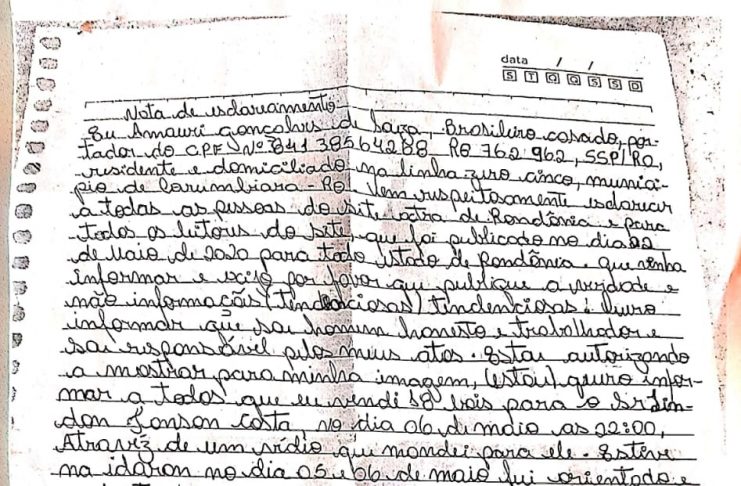 data / /
S T Q Q S S D
Nota de esclarecimento
Eu Amauri Gonçalves de Souza, Brasileiro casado, por-
tador do CPF Nº 84138564288 RG 762962, SSP/RO,
residente e domiciliado na linha zero cinco, municí-
pio de Corumbiara - RO. Vem respeitosamente esclarecer
a todas as pessoas do site de Rondônia e para
todos os leitores do site, que foi publicado no dia 22
de Maio de 2020 para todo estado de Rondônia. que venha
informar e por favor que publique a verdade e
não informações (Tendenciosas) tendenciosas! Quero
informar que sou homem honesto e trabalhador e
sou responsável pelos meus atos. Estou autorizando
a mostrar para minha imagem, (estou) quero infor-
mar a todos que eu vendi 18 bois para o Sr Lin-
don Jonson Costa, no dia 06 de maio as 22:00,
Atravéz de um vídio que mandei para ele. Estive
na idaron no dia 05 e 06 de maio fui orientado e